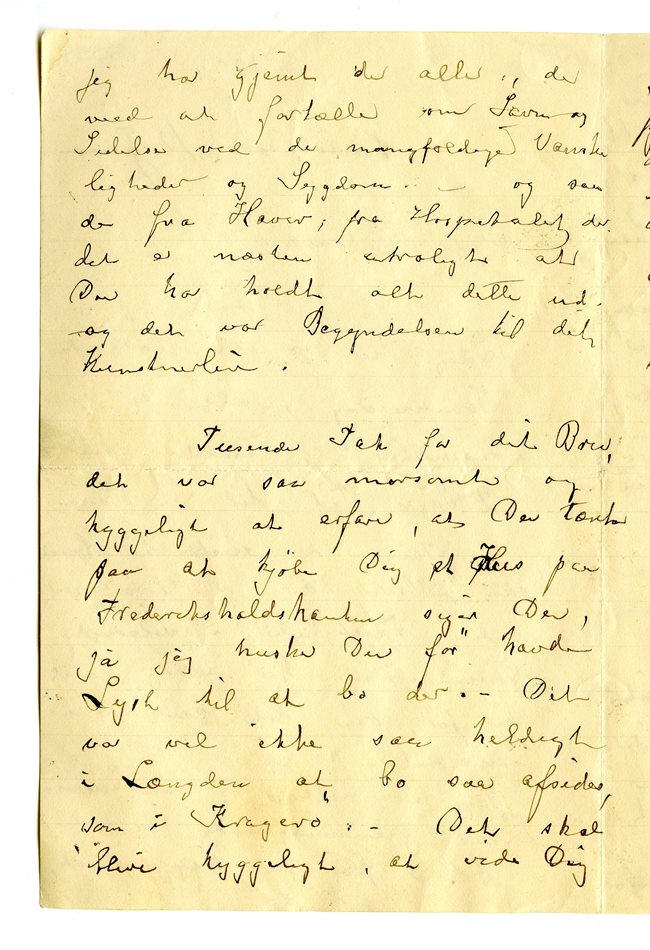 jeg har gjemt de alle, de
veed at fortælle om Savn og
Lidelse ved de mangfoldige Vanske
ligheder og Sygdom. – og saa
de fra Havre, fra Hospitalet, der
det er næsten utroligt at
Du har holdt alt dette ud –
og det var Begyndelsen til dit
Kunstnerliv.
Tusende Tak for dit Brev,
det var saa morsomt og
hyggeligt at erfare, at Du tænker
paa at kjøbe Dig et Hus paa
Frederikshaldskanten siger Du,
ja jeg husker Du før havde
Lyst til at bo der. – Det
var vel ikke saa heldigt
i Længden at bo saa afsides,
som i Kragerö. – Det skal
blive hyggeligt, at vide Dig